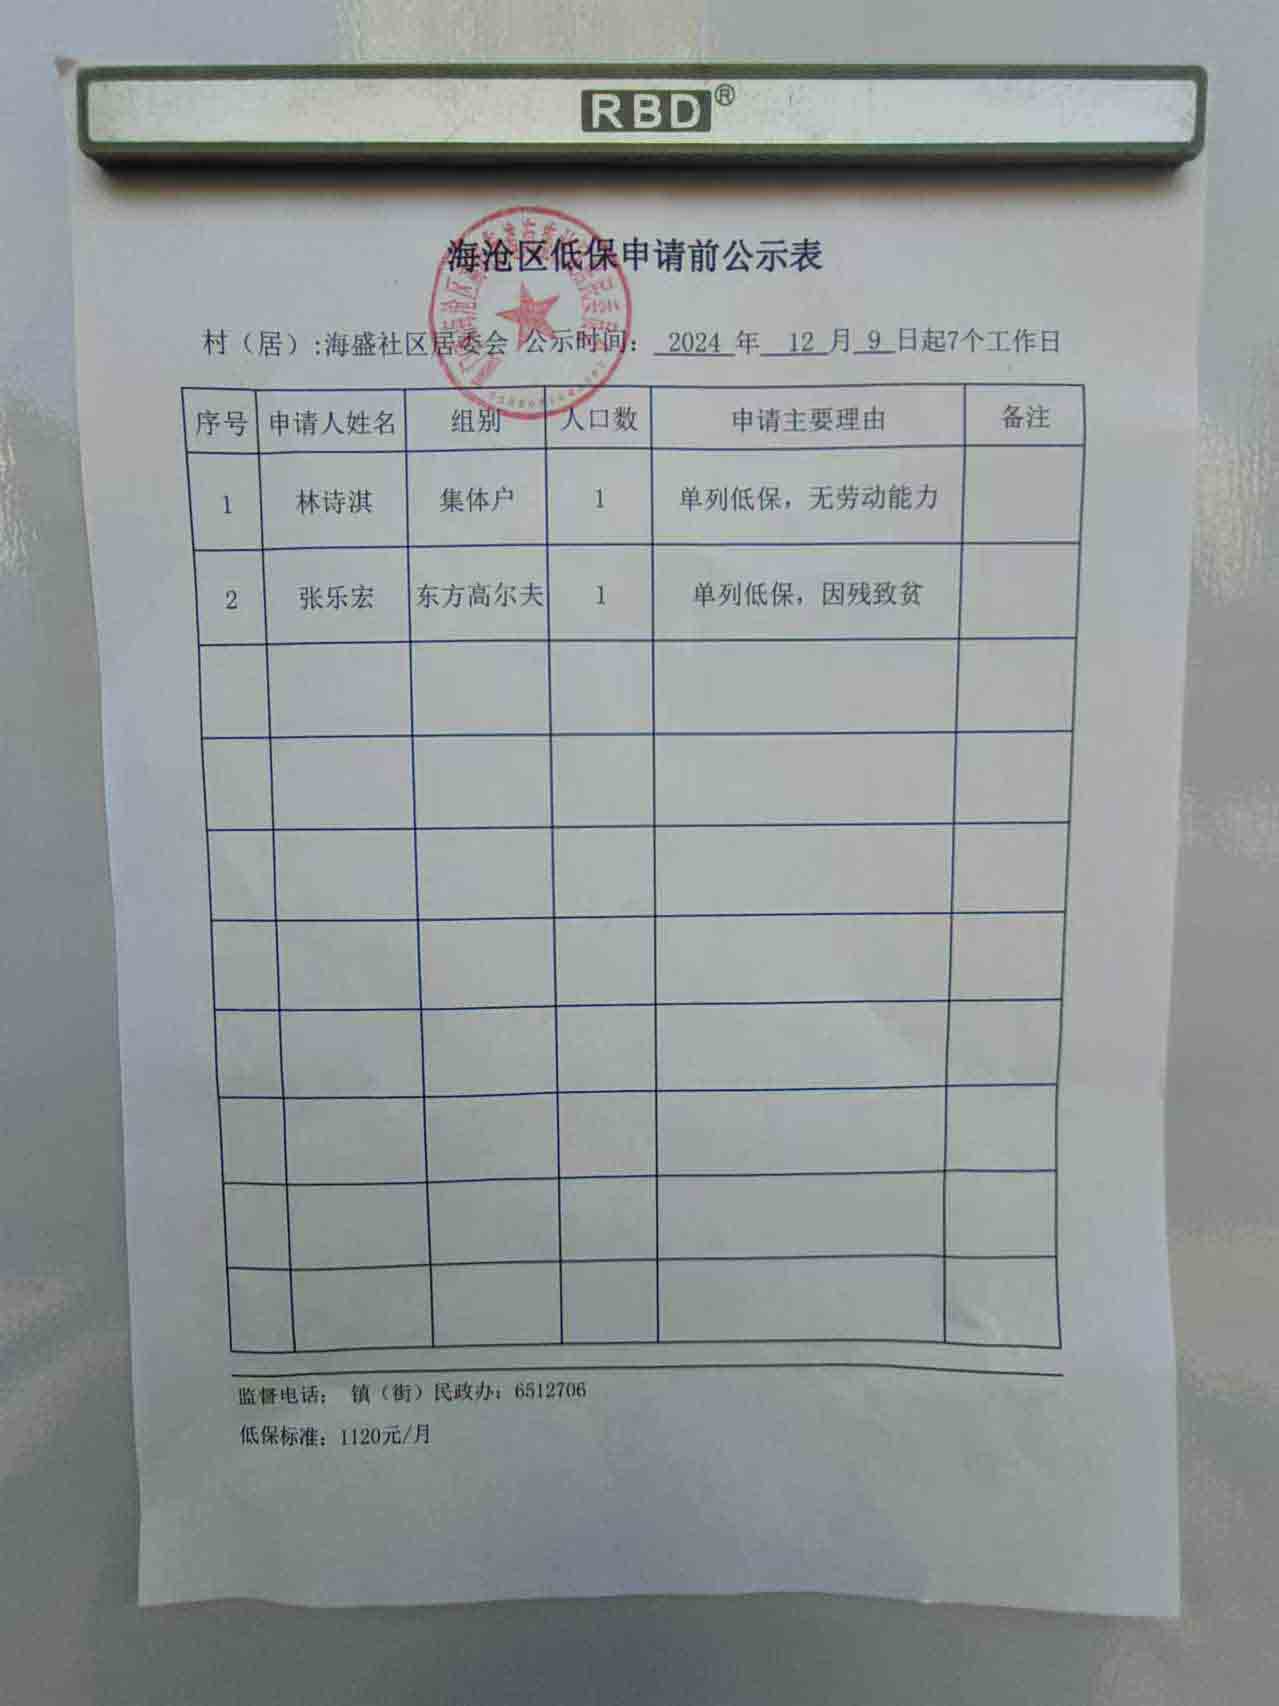 RBD®
海沧区低保申请前公示表
村（居）:海盛社区居委会 公示时间： 2024 年 12 月 9 日起7个工作日
序号 申请人姓名 组别 人口数 申请主要理由 备注
1 林诗淇 集体户 1 单列低保，无劳动能力
2 张乐宏 东方高尔夫 1 单列低保，因残致贫
监督电话： 镇（街）民政办：6512706
低保标准：1120元/月